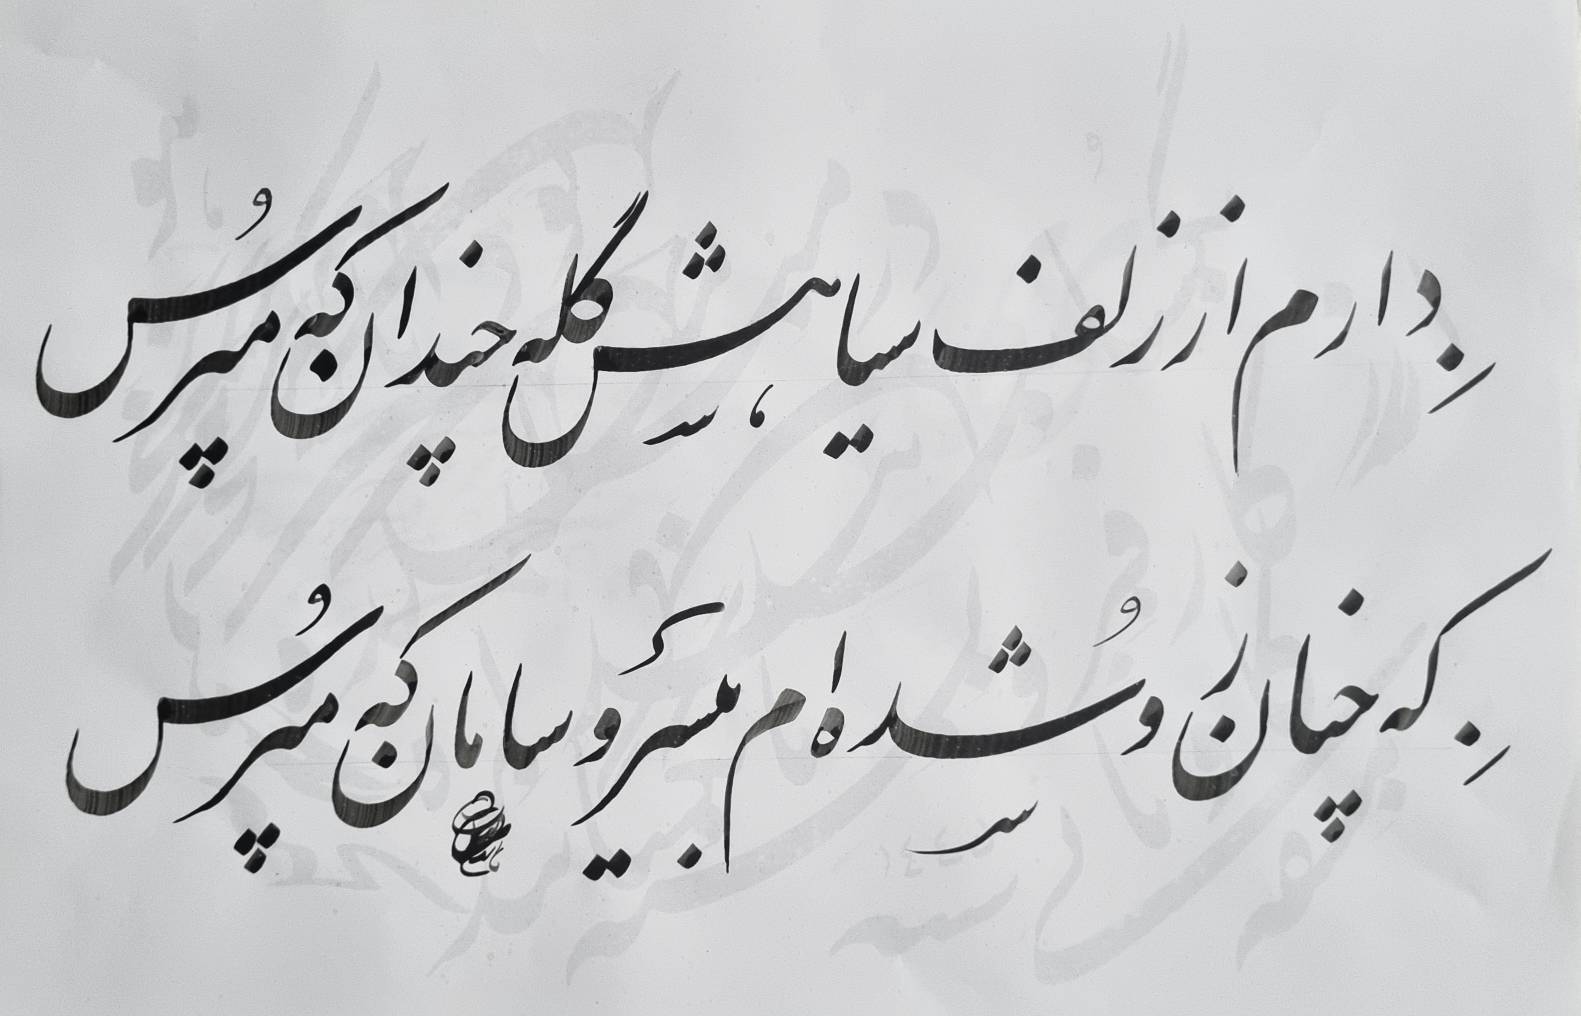 دارم از زلف سیاهش گله چندان که مپرس
که چنان زو شده‌ام بی سر و سامان که مپرس